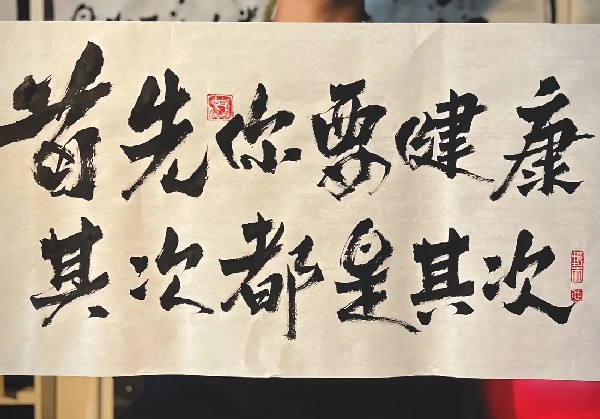 首先你要健康
其次都是其次